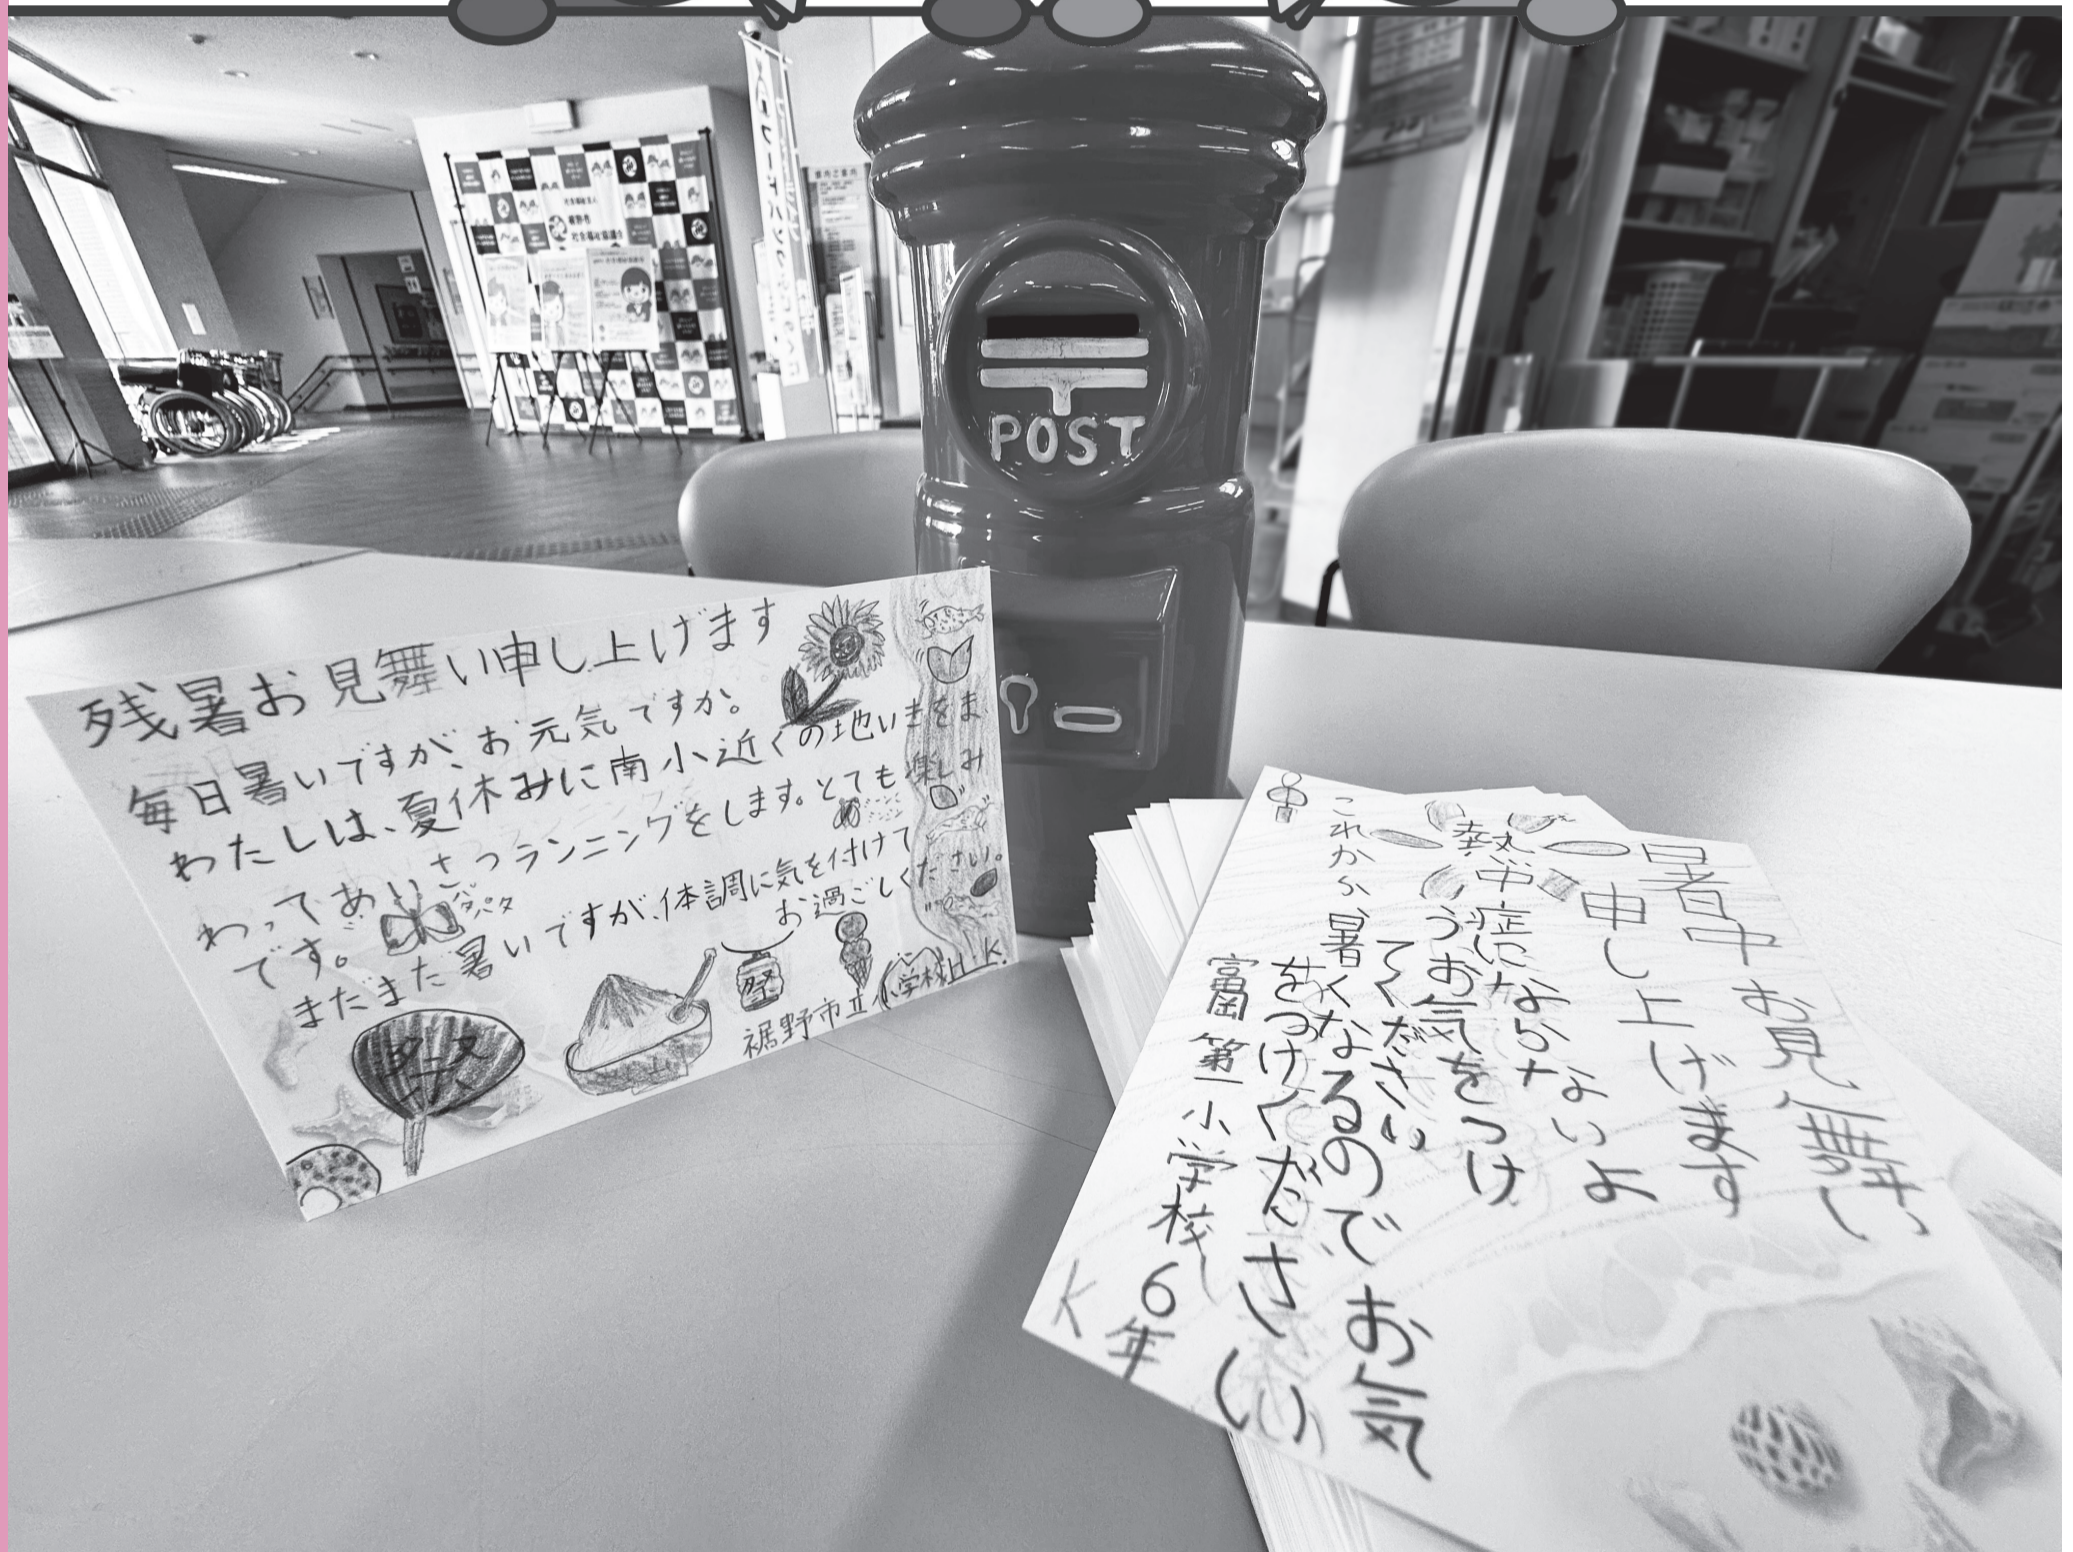 社会福祉法人
裾野市
社会福祉協議会
館内ご案内
POST
残暑お見舞い申し上げます
毎日暑いですが、お元気ですか。
わたしは、夏休みに南小近くの地いきをま
わってあいさつランニングをします。とても楽しみ
です。
パタパタ
まだまだ暑いですが、体調に気を付けて
お過ごしください。
祭
祭
裾野市立 小学校 H.K.
暑中お見舞い
申し上げます
熱中症にならないよ
うお気をつけ
てください
これから暑くなるのでお気
をつけください
富岡第一小学校
6年
K